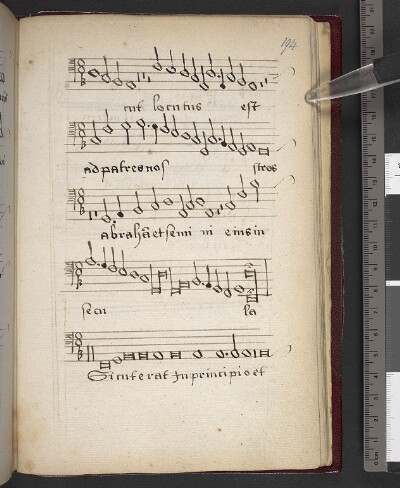 194
cut locutus est
ad patres nos stros
abrahā et semi ni eius in
secu la
Sicut erat In principio et